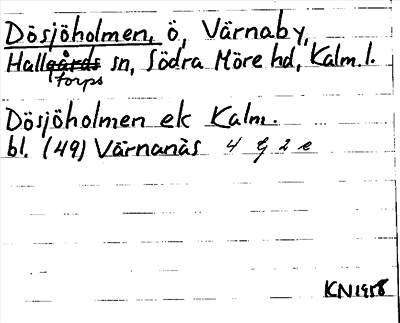 Dösjöholmen, ö, Värnaby,
Hallgårds sn, Södra Möre hd, Kalm. l.
torps
Dösjöholmen ek Kalm.
bl. (49) Värnanäs 4 G 2 e
KN1958